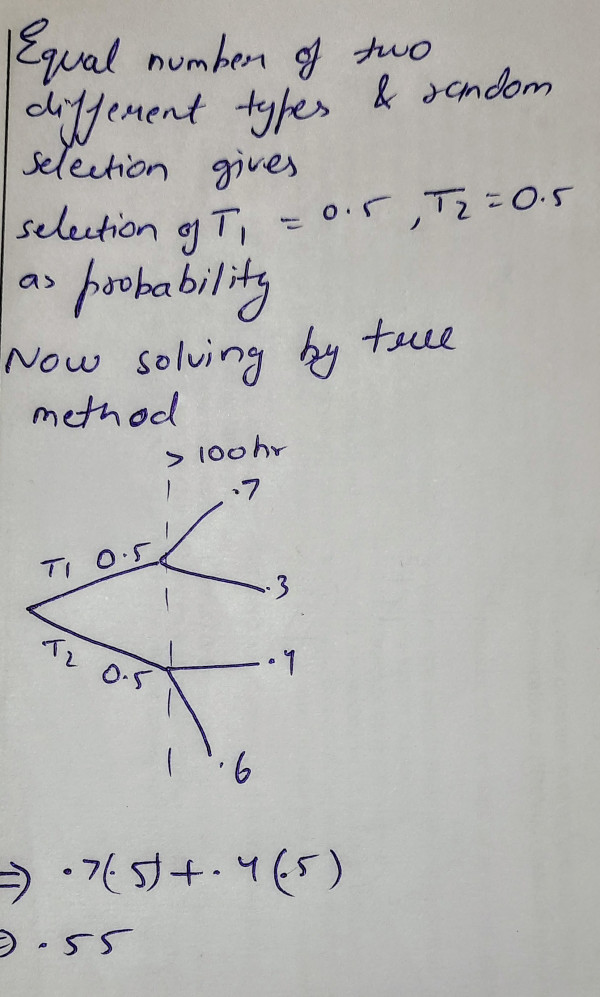 Equal number of two
different types & random
selection gives
selection of T1 = 0.5, T2 = 0.5
as probability
Now solving by tree
method
> 100hr
.7
T1 0.5
.3
T2
0.5
.4
.6
⇒ .7(.5) + .4(.5)
⇒ .55